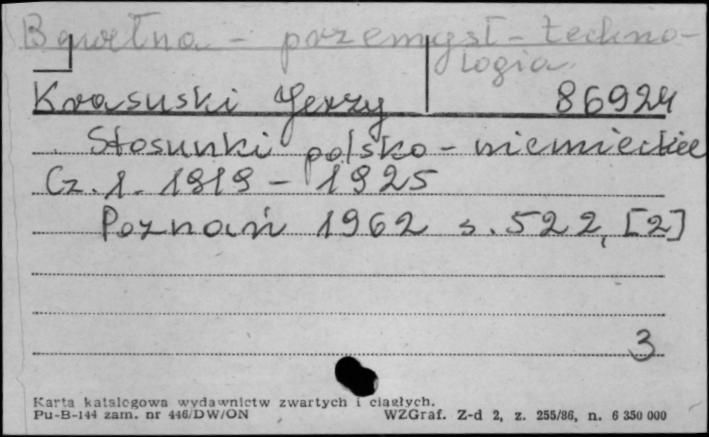 Bawełna - przemysł - techno-
logia
Krasuski Jerzy 86924
Stosunki polsko - niemieckie
Cz. 1. 1919 - 1925
Poznań 1962 s. 522, [2]
3
Karta katalogowa wydawnictw zwartych i ciągłych.
Pu-B-144 zam. nr 446/DW/ON WZGraf. Z-d 2, z. 255/86, n. 6 350 000